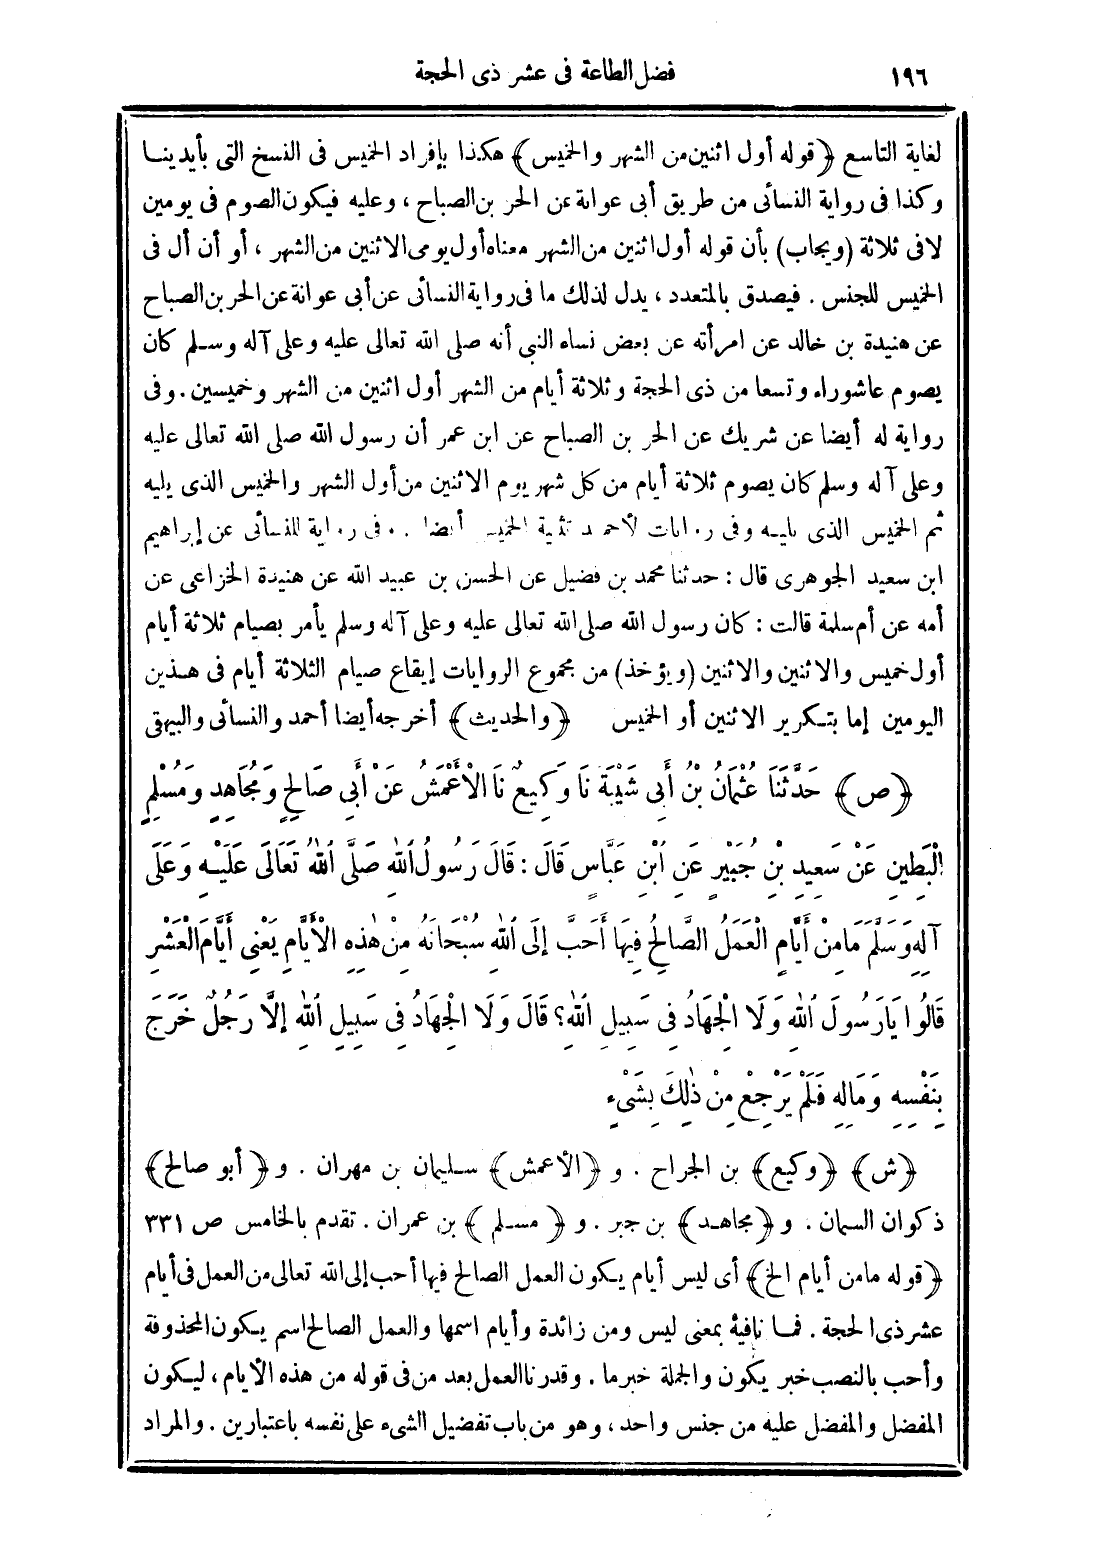 ١٩٦ فضل الطاعة فى عشر ذى الحجة
لغاية التاسع ﴿قوله أول اثنين من الشهر والخميس﴾ هكذا بإفراد الخميس فى النسخ التى بأيدينا
وكذا فى رواية النسائى من طريق أبى عوانة عن الحر بن الصباح ، وعليه فيكون الصوم فى يومين
لا فى ثلاثة (ويجاب) بأن قوله أول اثنين من الشهر معناه أول يومى الاثنين من الشهر ، أو أن أل فى
الخميس للجنس . فيصدق بالمتعدد ، يدل لذلك ما فى رواية النسائى عن أبى عوانة عن الحر بن الصباح
عن هنيدة بن خالد عن امرأته عن بعض نساء النبى أنه صلى الله تعالى عليه وعلى آله وسلم كان
يصوم عاشوراء وتسعا من ذى الحجة وثلاثة أيام من الشهر أول اثنين من الشهر وخميسين . وفى
رواية له أيضا عن شريك عن الحر بن الصباح عن ابن عمر أن رسول الله صلى الله تعالى عليه
وعلى آله وسلم كان يصوم ثلاثة أيام من كل شهر يوم الاثنين من أول الشهر والخميس الذى يليه
ثم الخميس الذى يليه وفى روايات لأحمد تثنية الخميس أيضا . وفى رواية للنسائى عن إبراهيم
ابن سعيد الجوهرى قال : حدثنا محمد بن فضيل عن الحسن بن عبيد الله عن هنيدة الخزاعى عن
أمه عن أم سلمة قالت : كان رسول الله صلى الله تعالى عليه وعلى آله وسلم يأمر بصيام ثلاثة أيام
أول خميس والاثنين والاثنين (ويؤخذ) من مجموع الروايات إيقاع صيام الثلاثة أيام فى هذين
اليومين إما بتكرير الاثنين أو الخميس ﴿والحديث﴾ أخرجه أيضا أحمد والنسائى والبيهقى
﴿ص﴾ حَدَّثَنَا عُثْمَانُ بْنُ أَبِى شَيْبَةَ نَا وَكِيعٌ نَا الْأَعْمَشُ عَنْ أَبِى صَالِحٍ وَمُجَاهِدٍ وَمُسْلِمٍ
الْبَطِينِ عَنْ سَعِيدِ بْنِ جُبَيْرٍ عَنِ ابْنِ عَبَّاسٍ قَالَ : قَالَ رَسُولُ اللهِ صَلَّى اللهُ تَعَالَى عَلَيْهِ وَعَلَى
آلِهِ وَسَلَّمَ مَا مِنْ أَيَّامٍ الْعَمَلُ الصَّالِحُ فِيهَا أَحَبَّ إِلَى اللهِ سُبْحَانَهُ مِنْ هٰذِهِ الْأَيَّامِ يَعْنِى أَيَّامَ الْعَشْرِ
قَالُوا يَا رَسُولَ اللهِ وَلَا الْجِهَادُ فِى سَبِيلِ اللهِ؟ قَالَ وَلَا الْجِهَادُ فِى سَبِيلِ اللهِ إِلَّا رَجُلٌ خَرَجَ
بِنَفْسِهِ وَمَالِهِ فَلَمْ يَرْجِعْ مِنْ ذٰلِكَ بِشَىْءٍ
﴿ش﴾ ﴿وكيع﴾ بن الجراح . و ﴿الأعمش﴾ سليمان بن مهران . و ﴿أبو صالح﴾
ذكوان السمان . و ﴿مجاهد﴾ بن جبر . و ﴿مسلم﴾ بن عمران . تقدم بالخامس ص ٣٣١
﴿قوله ما من أيام الخ﴾ أى ليس أيام يكون العمل الصالح فيها أحب إلى الله تعالى من العمل فى أيام
عشر ذى الحجة . فما نافية بمعنى ليس ومن زائدة وأيام اسمها والعمل الصالح اسم يكون المحذوفة
وأحب بالنصب خبر يكون والجملة خبر ما . وقدرنا العمل بعد من فى قوله من هذه الأيام ، ليكون
المفضل والمفضل عليه من جنس واحد ، وهو من باب تفضيل الشىء على نفسه باعتبارين . والمراد